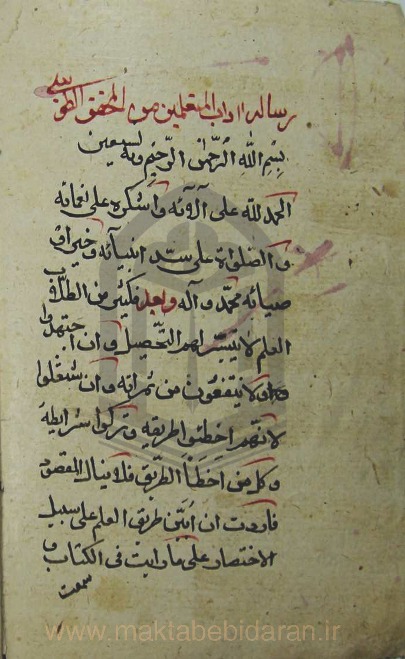 رسالة اداب المتعلمين من المحقق الطوسی
بسم الله الرحمن الرحیم وبه نستعین
الحمد لله علی آلائه واشکره علی نعمائه
والصلواة علی سید انبیائه وخیر او
صیائه محمد وآله وبعد فکثیر من الطلاب
العلم لا یتیسر لهم التحصیل وان اجتهدوا
ولا ینتفعون من ثمراته وان شتغلوا
لانهم اخطئوا طریقه وترکوا شرایطه
وکل من اخطأ الطریق فلا ینال المقصود
فاردت ان ابین طریق العلم علی سبیل
الاختصار علی ما رایت فی الکتاب و
سمعت
www.maktabebidaran.ir